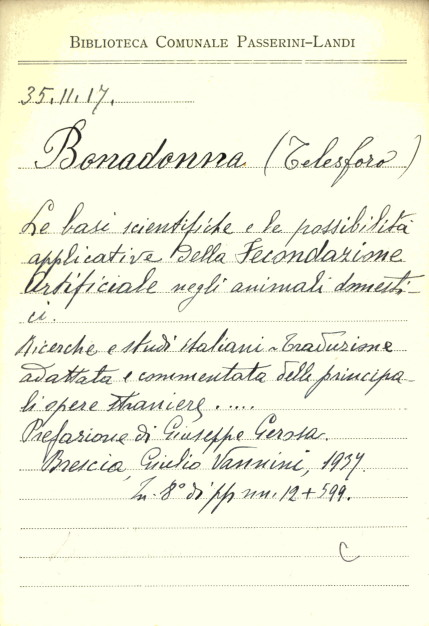 BIBLIOTECA COMUNALE PASSERINI-LANDI
35.11.17.
Bonadonna (Telesforo)
Le basi scientifiche e le possibilità
applicative della Fecondazione
Artificiale negli animali domesti-
ci.
Ricerche e studi italiani - Traduzione
adattata e commentata delle principa-
li opere straniere.....
Prefazione di Giuseppe Gerosa.
Brescia, Giulio Vannini, 1937.
In-8° di pp nn. 12+599.
C